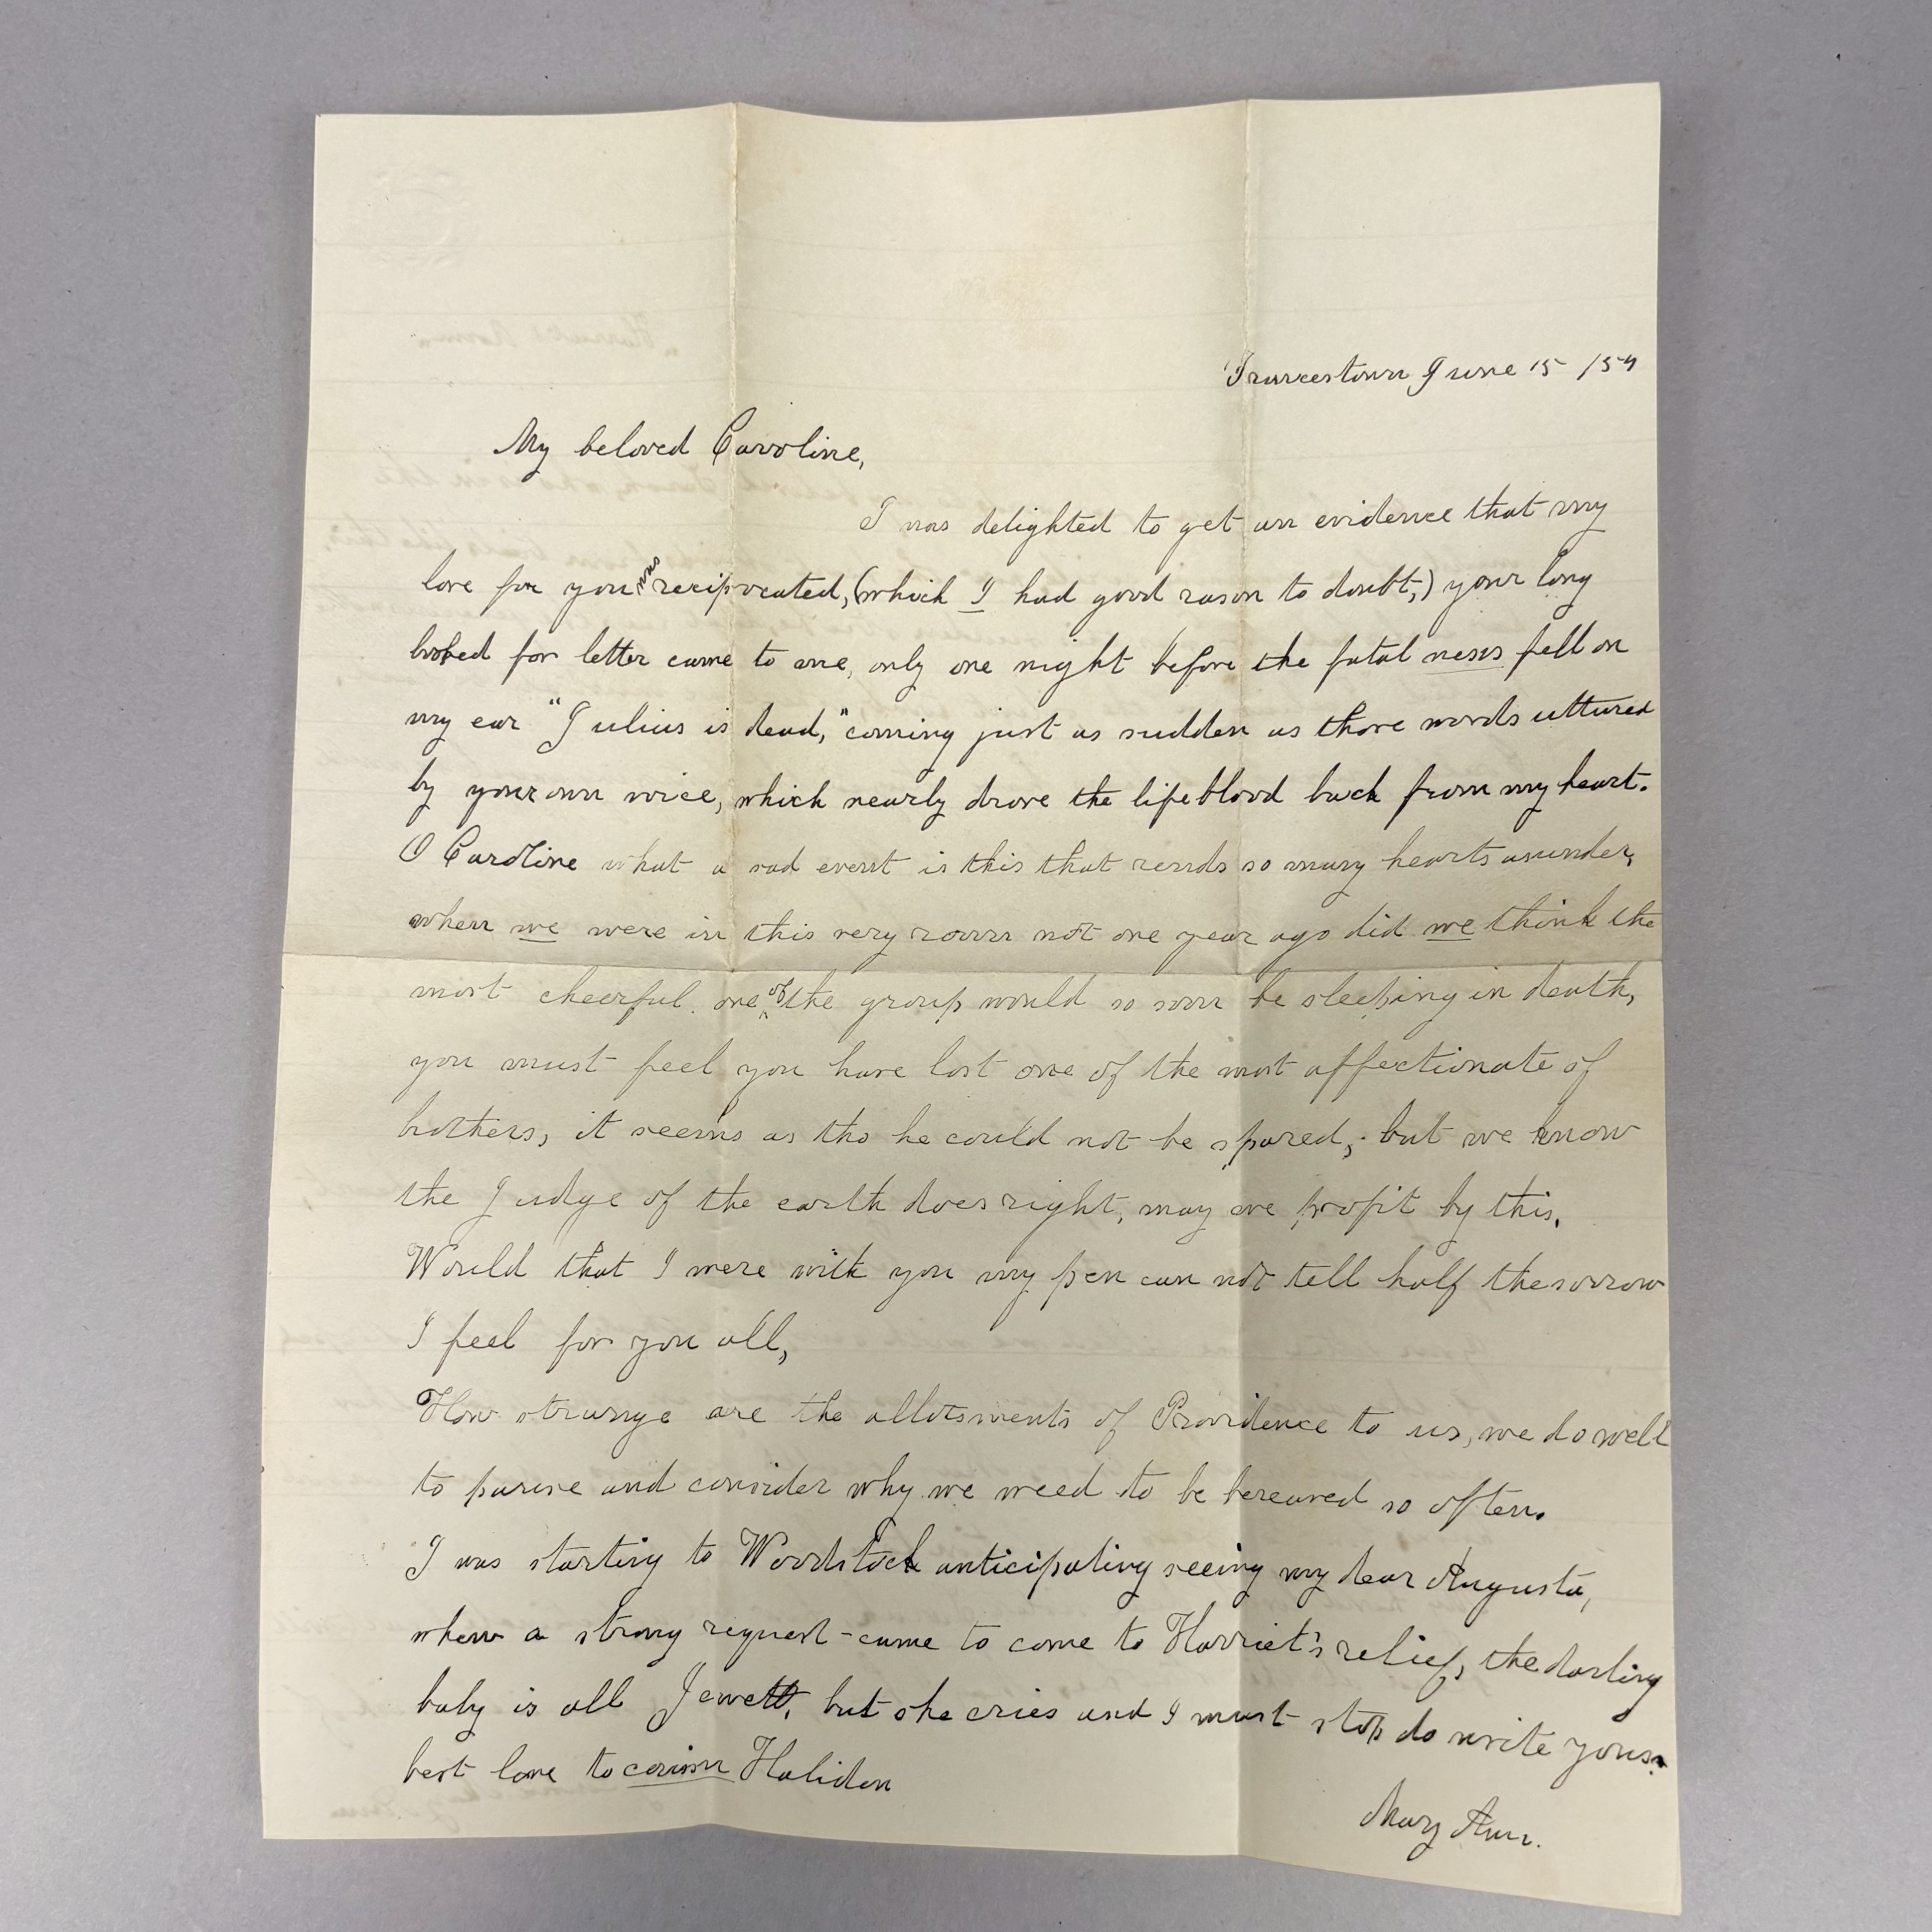 Francestown June 15 /54
My beloved Caroline,
I was delighted to get an evidence that my
love for you was reciprocated, (which I had good rason to doubt,) your long
looked for letter came to me, only one night before the fatal news fell on
my ear "Julius is dead," coming just as sudden as those words uttured
by your own voice, which nearly drove the lifeblood back from my heart.
O Caroline what a sad event is this that rends so many hearts asunder,
when we were in this very room not one year ago did we think the
most cheerful one of the group would so soon be sleeping in death,
you must feel you have lost one of the most affectionate of
brothers, it seems as tho he could not be spared, but we know
the Judge of the earth does right, may we profit by this.
Would that I were with you my pen can not tell half the sorrow
I feel for you all,
How strange are the allotments of Providence to us, we do well
to pause and consider why we need to be bereaved so often.
I was starting to Woodstock anticipating seeing my dear Augusta,
when a strong request came to come to Harriet's relief, the darling
baby is all Jewett, but she cries and I must stop do write yours.
best love to cousin Haliden
Mary Ann.